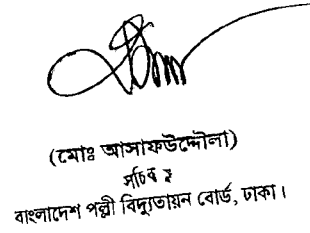 (মোঃ আসাফউদ্দৌলা)
সচিব
বাংলাদেশ পল্লী বিদ্যুতায়ন বোর্ড, ঢাকা।